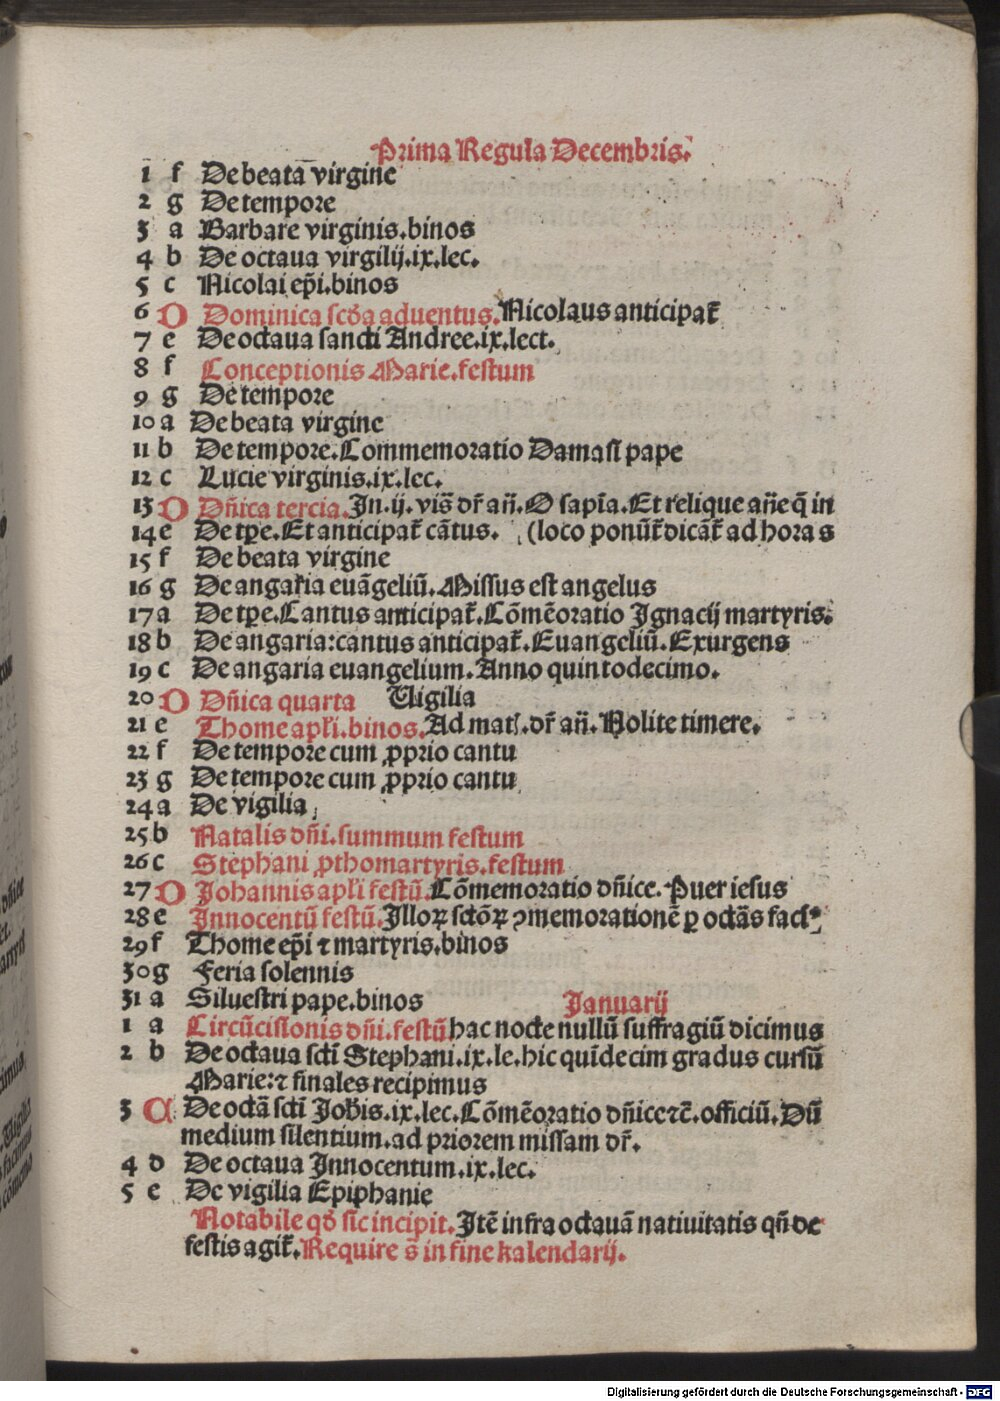 Prima Regula Decembris.
1 f De beata virgine
2 g De tempore
3 a Barbare virginis.binos
4 b De octaua virgilij.ix.lec.
5 c Nicolai ep̄i.binos
6 D Dominica scd̄a aduentus.Nicolaus anticipat̄
7 e De octaua sancti Andree.ix.lect.
8 f Conceptionis Marie.festum
9 g De tempore
10 a De beata virgine
11 b De tempore.Commemoratio Damasi pape
12 c Lucie virginis.ix.lec.
13 D Dn̄ica tercia.In.ij.vis̄ dr̄ añ.O sapīa.Et relique añe q̄ in
14 e De tp̄e.Et anticipat̄ cātus. (loco ponūt̄ dicāt̄ ad horas
15 f De beata virgine
16 g De angaria euāgeliū.Missus est angelus
17 a De tp̄e.Cantus anticipat̄.Cōmēoratio Ignacij martyris.
18 b De angaria:cantus anticipat̄.Euangeliū.Exurgens
19 c De angaria euangelium.Anno quintodecimo.
20 D Dn̄ica quarta Vigilia
21 e Thome apl̄i.binos.Ad mat̄.dr̄ añ.Nolite timere.
22 f De tempore cum ꝓprio cantu
23 g De tempore cum ꝓprio cantu
24 a De vigilia
25 b Natalis dn̄i.summum festum
26 c Stephani ꝓthomartyris.festum
27 D Johannis apl̄i festū.Cōmemoratio dn̄ice.Puer iesus
28 e Innocentū festū.Illoꝝ sctōꝝ ꝯmemorationē ꝑ octās fac
29 f Thome ep̄i ⁊ martyris.binos
30 g Feria solennis
31 a Siluestri pape.binos
Januarij
1 a Circūcisionis dn̄i.festū hac nocte nullū suffragiū dicimus
2 b De octaua scti Stephani.ix.le.hic quīdecim gradus cursū
Marie:⁊ finales recipimus
3 C De octā scti Joh̄is.ix.lec.Cōmēoratio dn̄ice ⁊c̄.officiū.Dū
medium silentium.ad priorem missam dr̄.
4 d De octaua Innocentum.ix.lec.
5 e De vigilia Epiphanie
Notabile qd̄ sic incipit.Itē infra octauā natiuitatis qn̄ de
festis agit̄.Require s̄ in fine kalendarij.
Digitalisierung gefördert durch die Deutsche Forschungsgemeinschaft - DFG